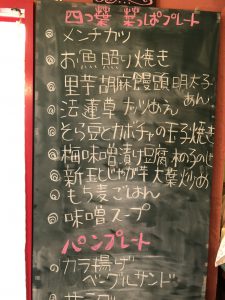 四つ葉 葉っぱプレート
◎メンチカツ
◎お魚照り焼き
◎里芋胡麻饅頭 明太子あん
◎法蓮草
◎そら豆とカボチャの玉子焼き
◎梅味噌漬け豆腐
◎新玉じゃが芋 大葉炒め
◎もち麦ごはん
◎味噌スープ
パンプレート
◎カラ揚げ
ベーグルサンド